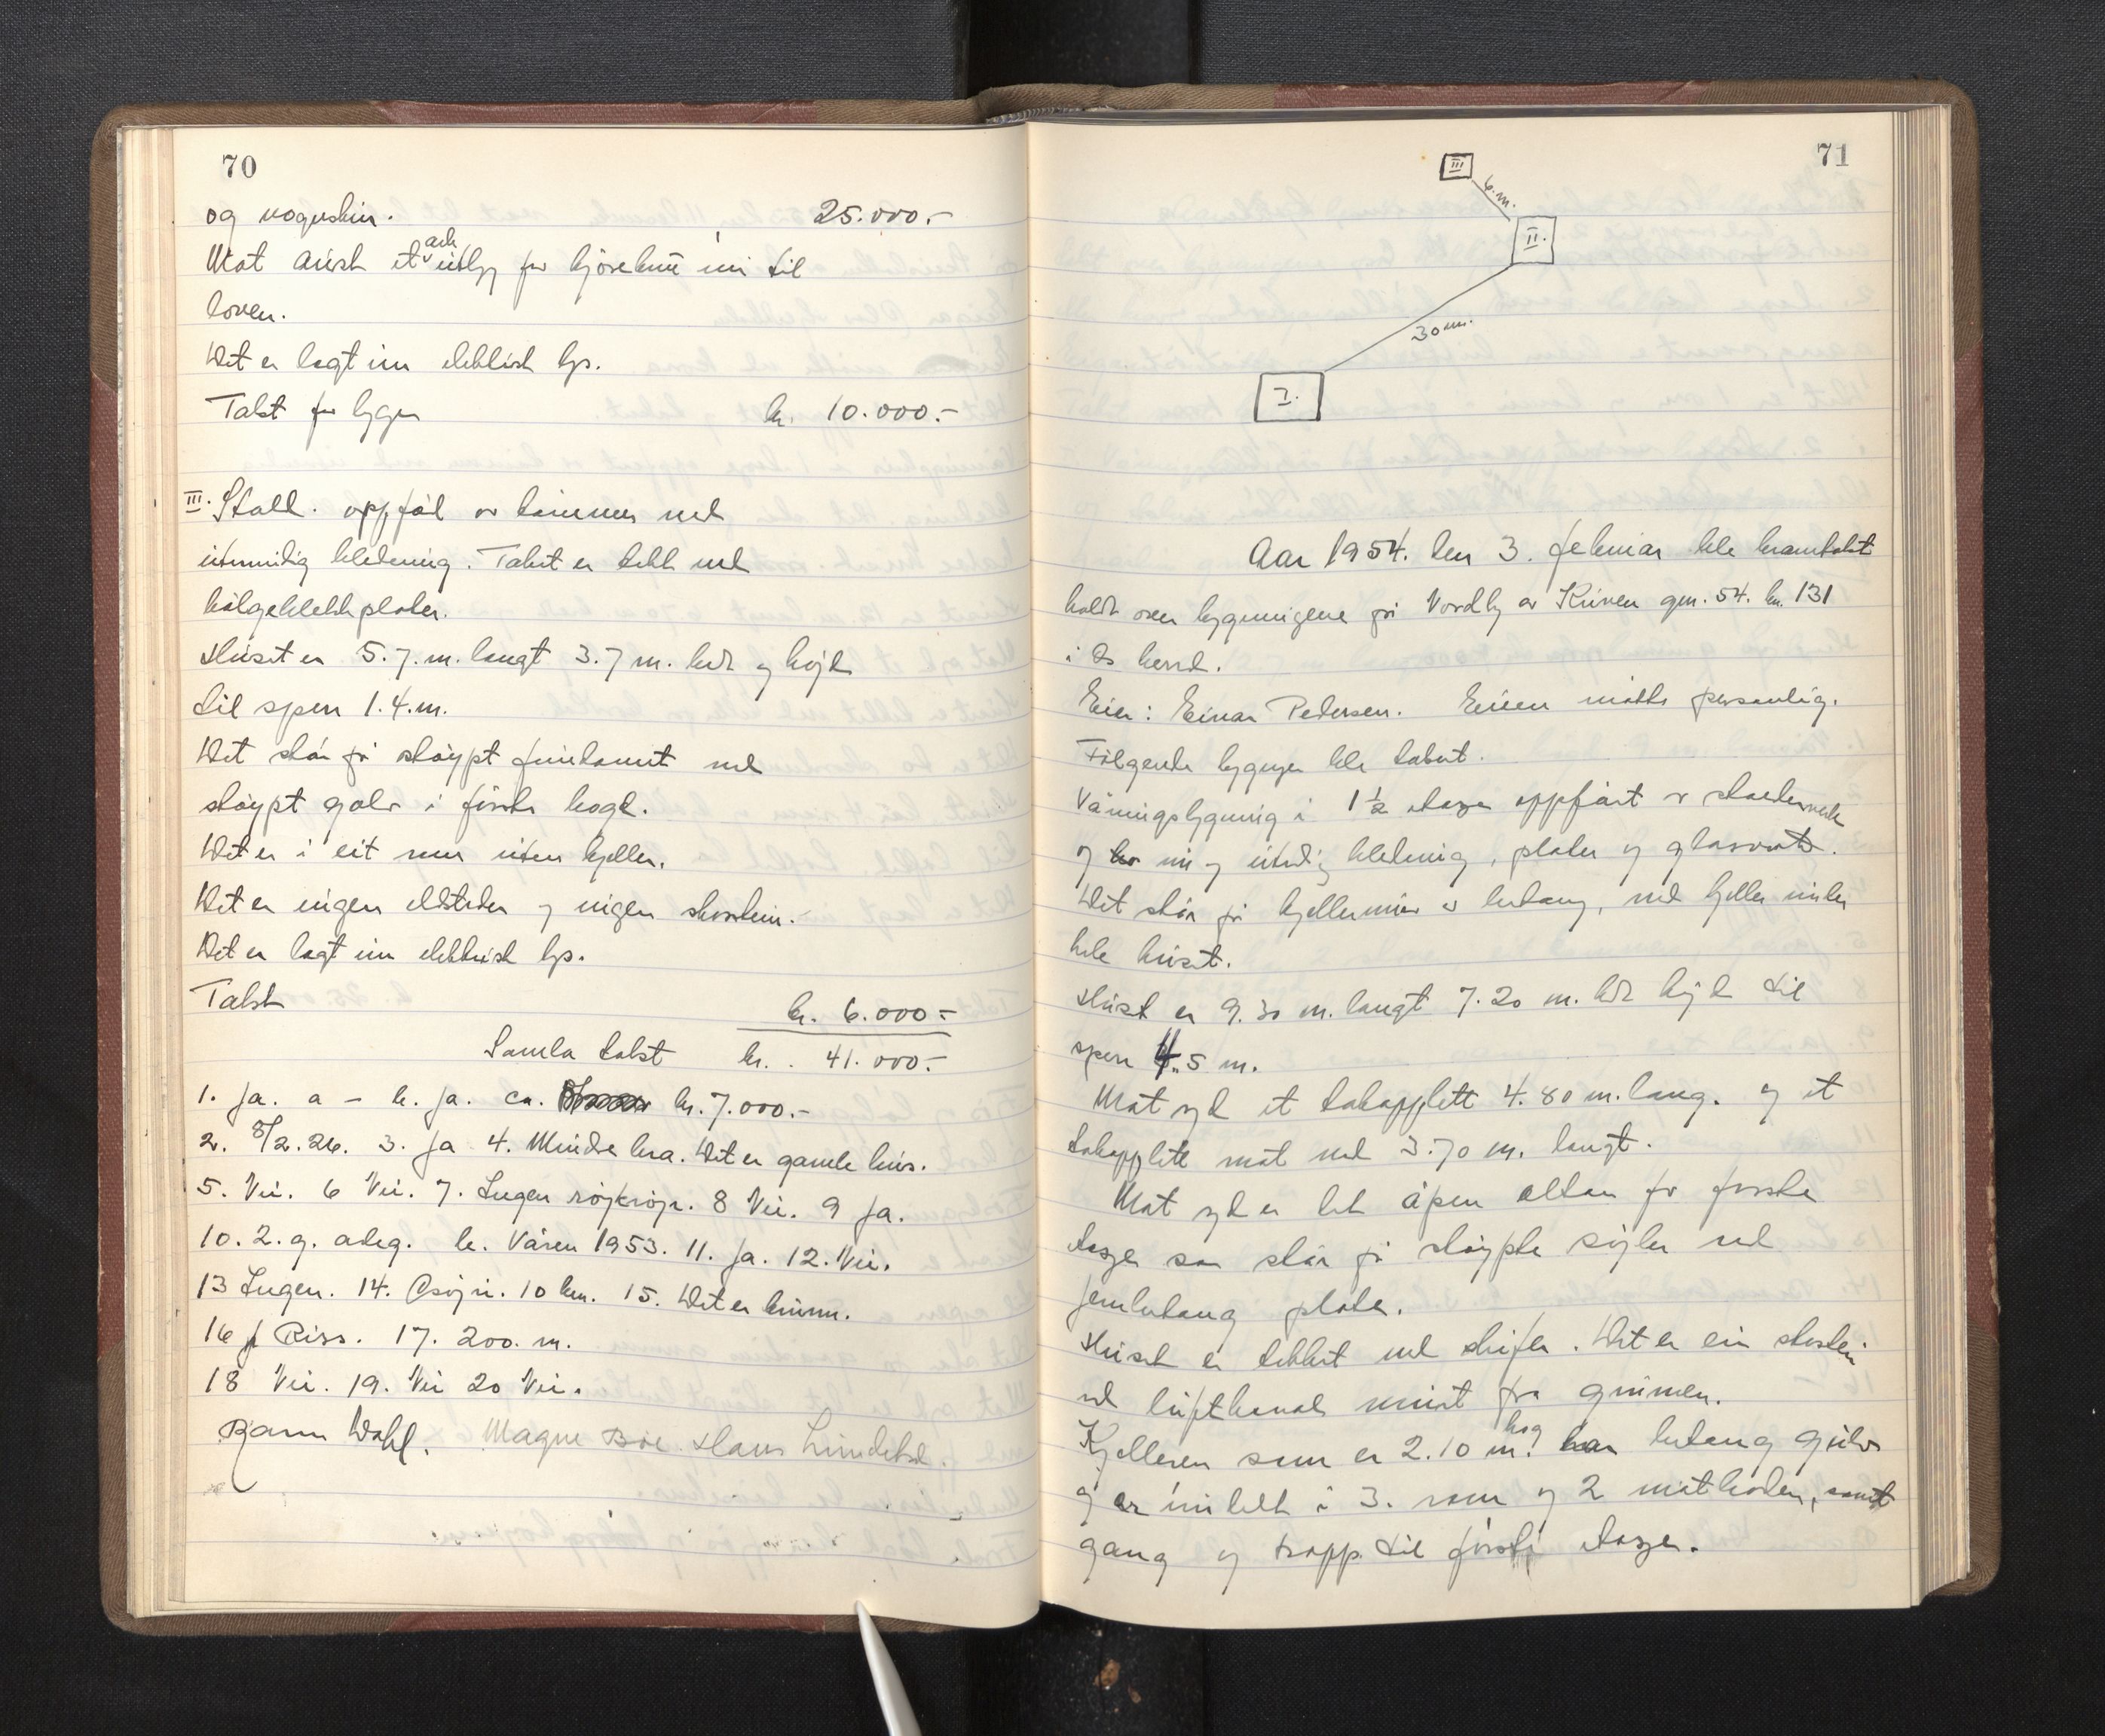 70
og vognskur. 25.000.-
Mot aust et ark utbygg for kjørebru inn til
loven.
Det er lagt inn elektrisk lys.
Takst for bygn kr. 10.000.-
III. Stall. oppført av tømmer med
utvendig kledning. Taket er tekt med
bølgeblekkplater.
Huset er 5.7.m. langt 3.7 m. bredt og højd
til sperr 1.4.m.
Det står på støypt fundament med
støypt golv i første høgd.
Det er i eit rum uten kjeller.
Det er ingen eldsteder og ingen skorstein.
Det er lagt inn elektrisk lys.
Takst kr. 6.000.-
Samla takst kr. 41.000.-
1. Ja. a – b. ja. ca. kr. 7.000.-
2. 8/2.26. 3. Ja 4. Mindre bra. Det er gamle hus.
5. Nei. 6 Nei. 7. Ingen røjkrøjr. 8 Nei. 9 Ja.
10. 2. g. adg. b. Våren 1953. 11. Ja. 12. Nei.
13 Ingen. 14. Osøyri. 10 km. 15. Det er brunn.
16 Riss. 17. 200. m.
18 Nei. 19. Nei 20 Nei.
Bjarne Dahl. Magne Bøe Hans Lunde
71
III
6.m.
II.
30 m.
I.
Aar 1954. den 3. februar ble branntakst
holdt over bygningene på Nordly av Kuven gnr. 54. bn. 131
i Os herred.
Eier: Einar Pedersen. Eieren møtte personlig.
Følgende bygninger ble takset.
Våningsbygning i 1 ½ etasje oppført av stenderverk
og inn og utvendig kledning, plater og glasvatt.
Det står på kjellermur av betong, med kjeller under
hele huset.
Huset er 9.30 m. langt 7.20 m. bredt højd til
sperr 4.5 m.
Mot syd et takopplett 4.80 m. lang. og et
takopplett mot nord 3.70 m. langt.
Mot syd er det åpen altan for første
etasje som står på støypte søyler med
jernbetong plate.
Huset er tekket med skifer. Det er ein skorstein
med luftkanal murt fra grunnen.
Kjelleren som er 2.10 m. høg har betong gulv
og er inndelt i 3. rom og 2 matboder, samt
gang og trapp til første etasje.